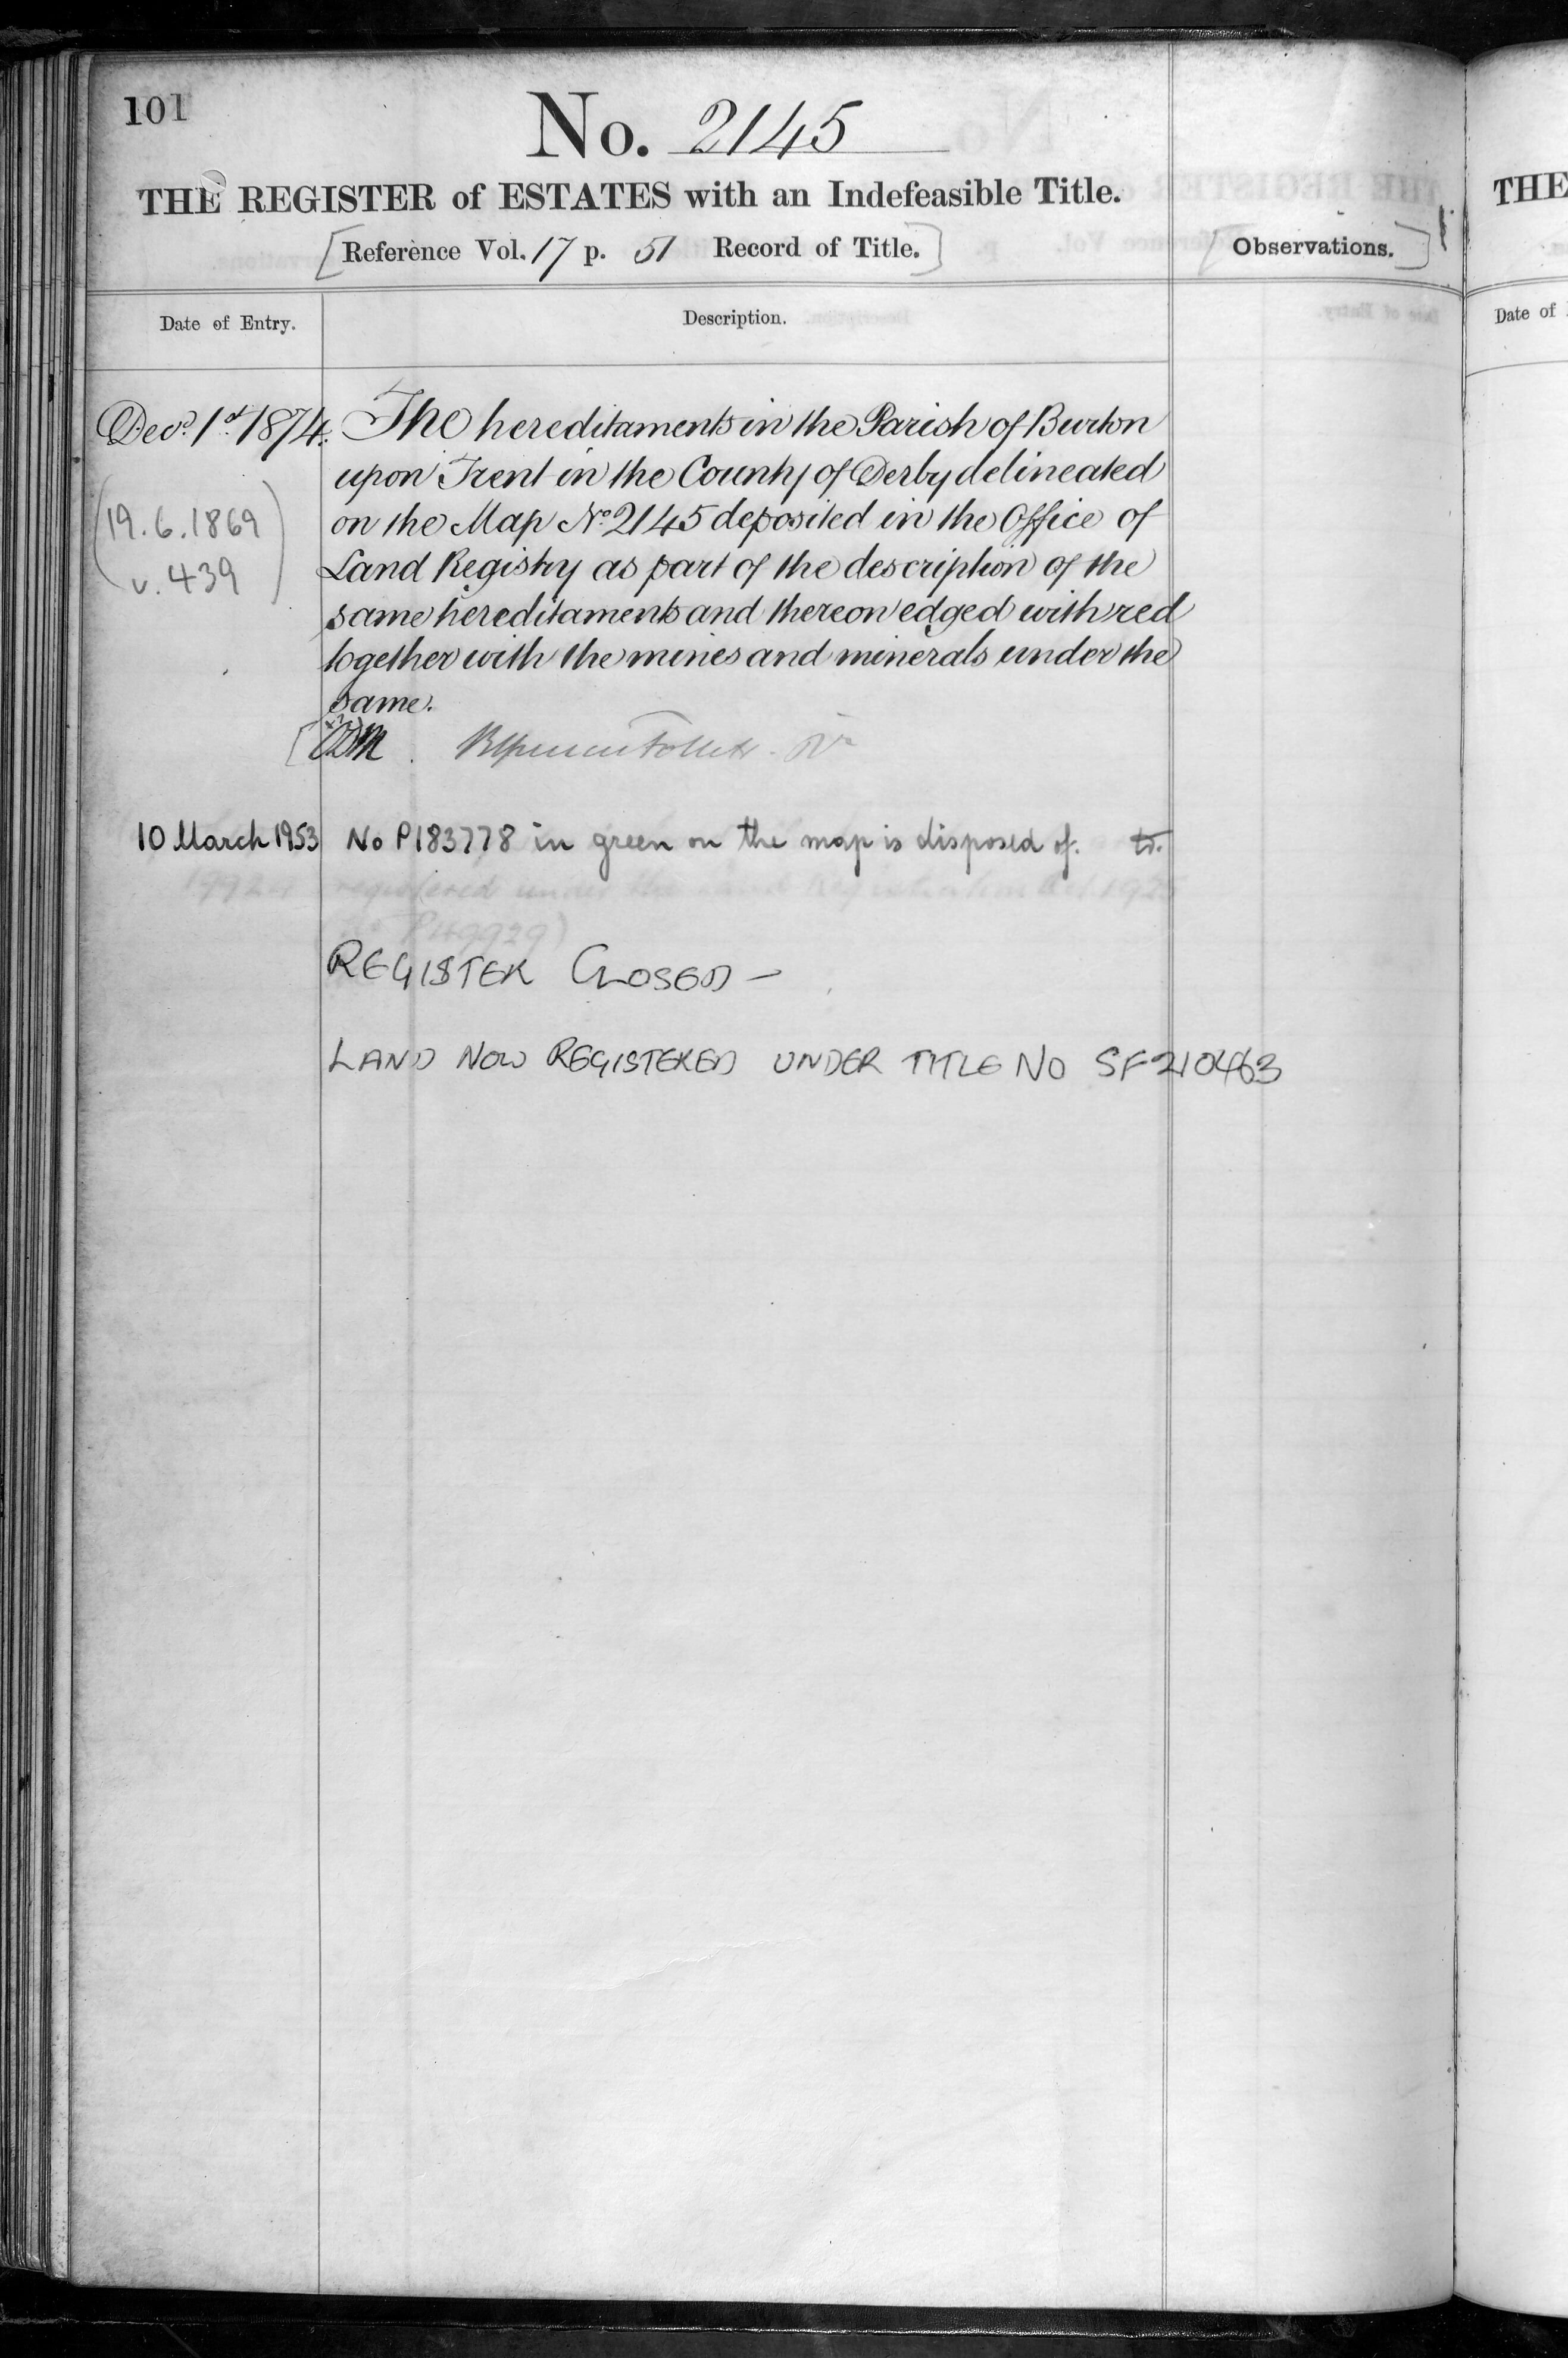 101
No. 2145
THE REGISTER of ESTATES with an Indefeasible Title.
[Reference Vol. 17 p. 51 Record of Title.]
[Observations.]
Date of Entry.
Description.
Decr. 1st 1874. The hereditaments in the Parish of Burton
upon Trent in the County of Derby delineated
on the Map No 2145 deposited in the Office of
Land Registry as part of the description of the
same hereditaments and thereon edged with red
together with the mines and minerals under the
same.
(19.6.1869
v. 439)
10 March 1953 No P183778 in green on the map is disposed of.
REGISTER CLOSED —
LAND NOW REGISTERED UNDER TITLE NO SF210463
THE
Date of